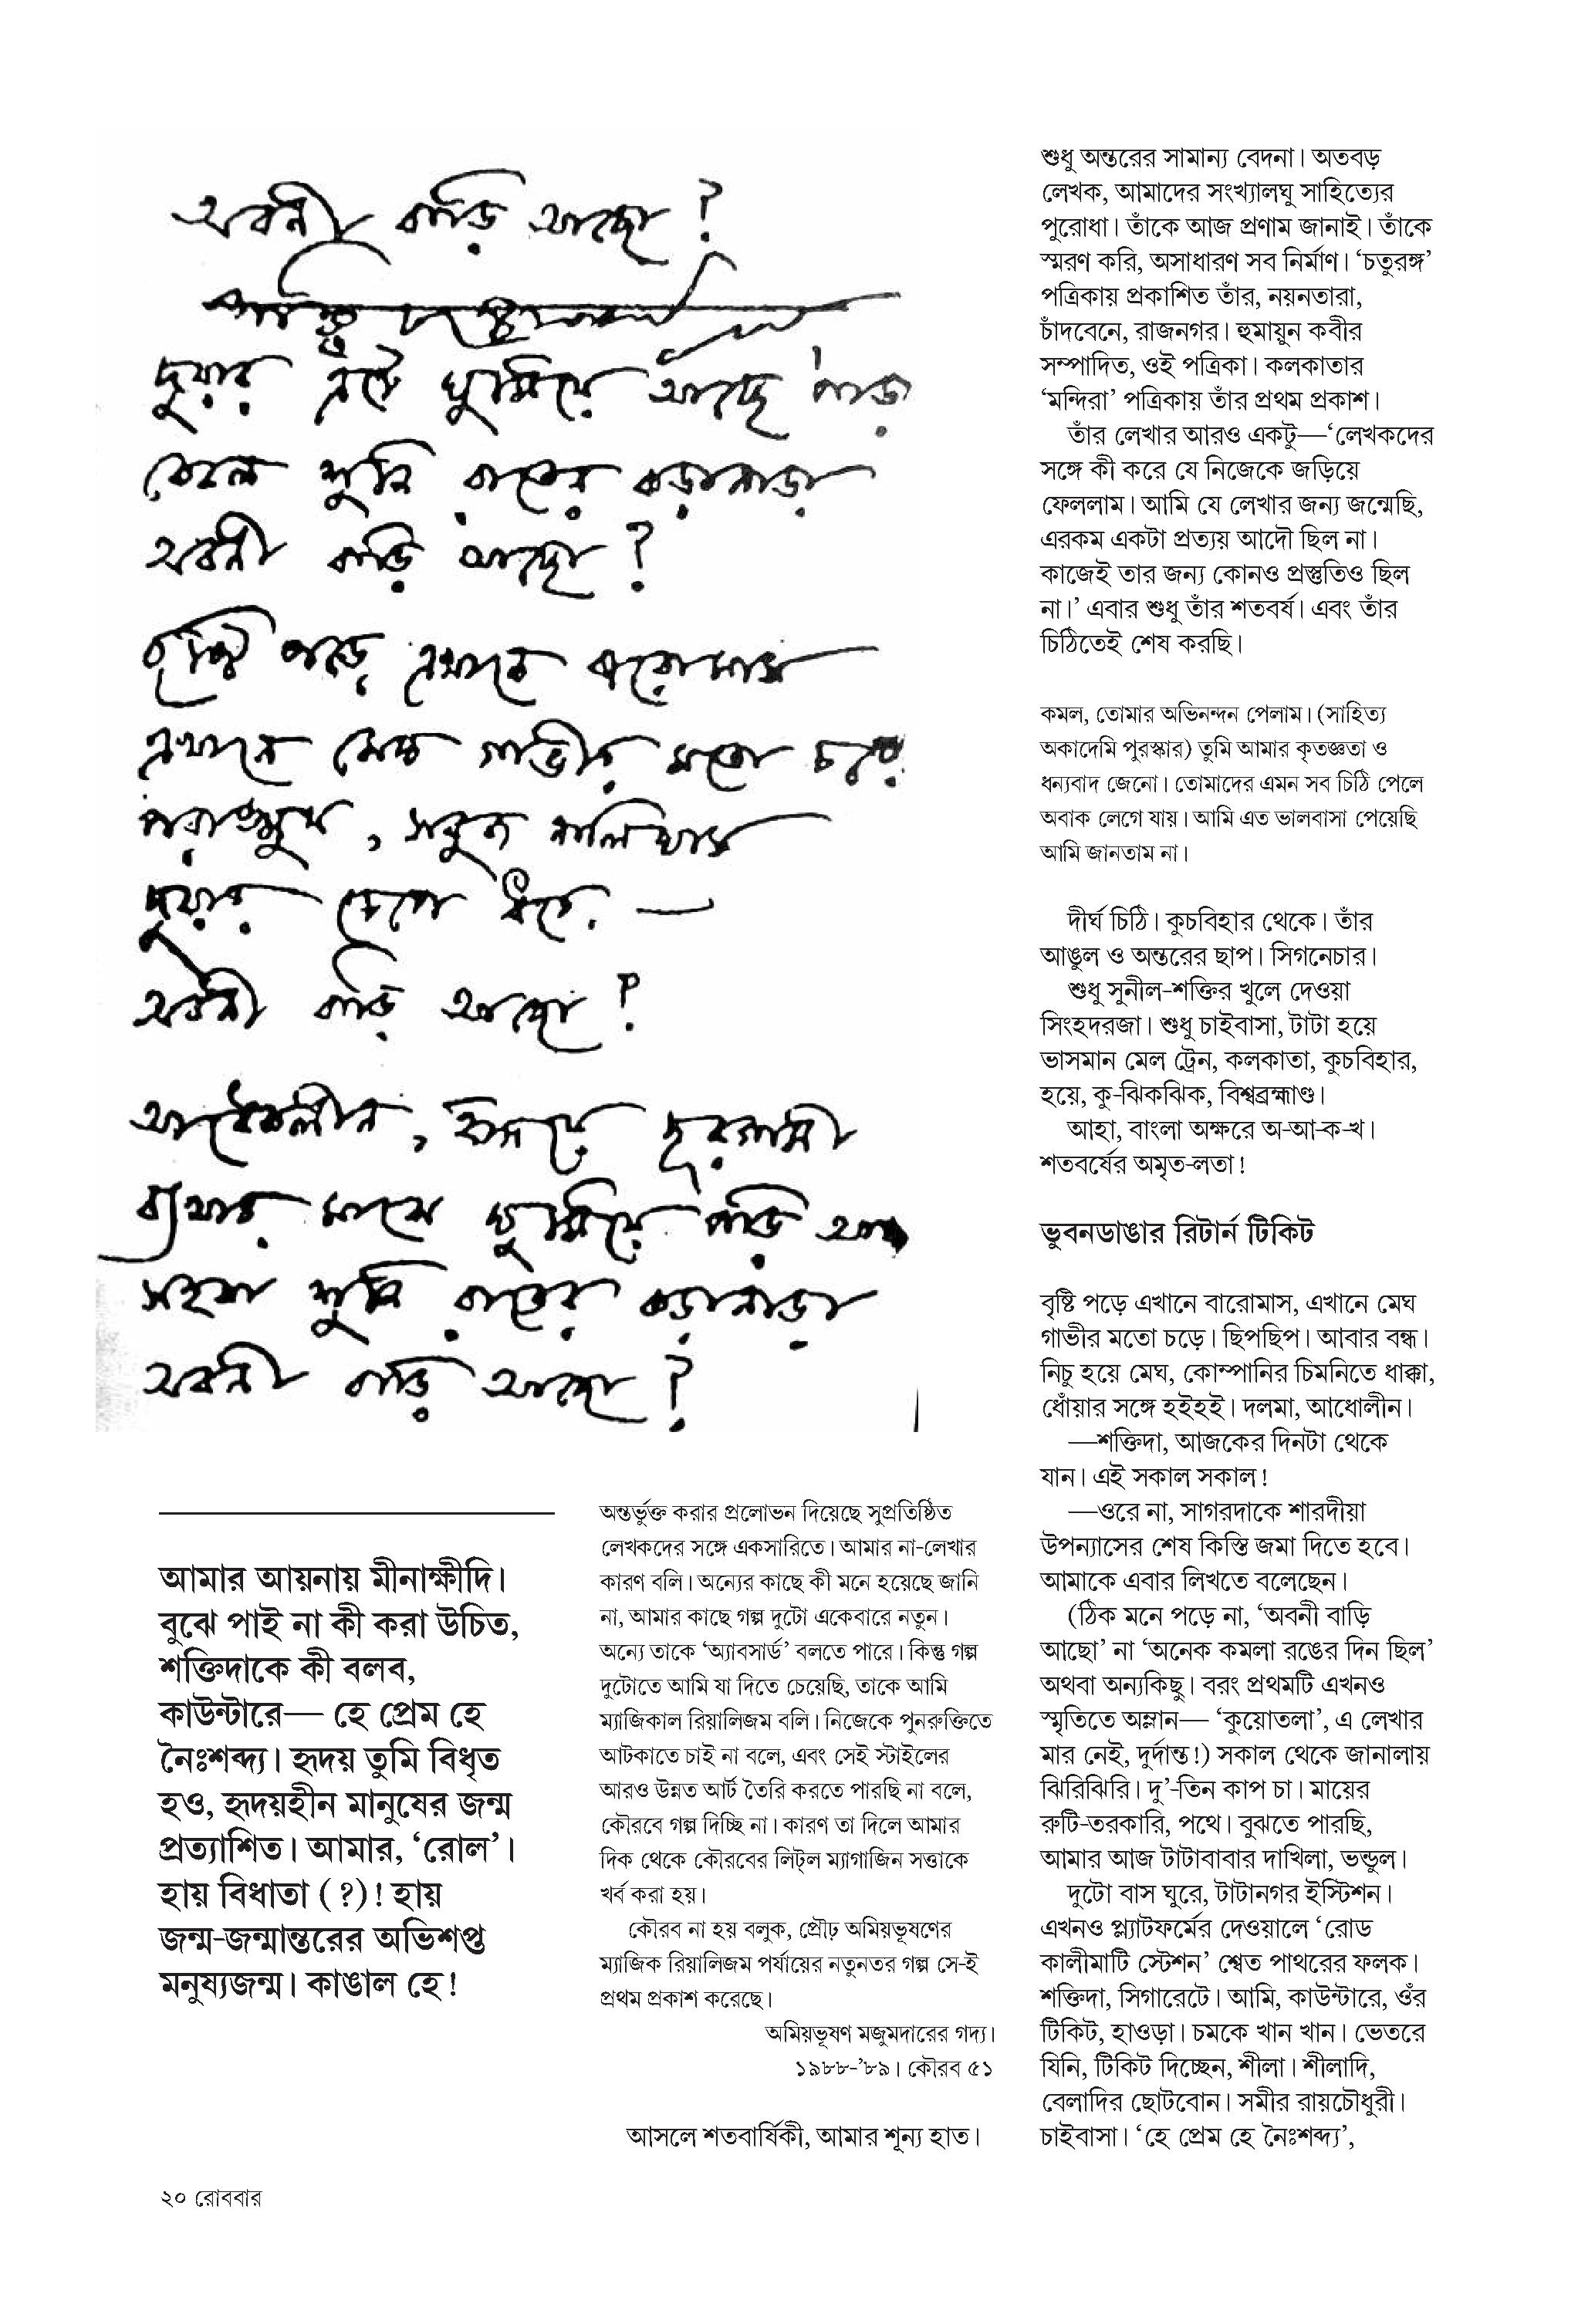 অবনী বাড়ি আছো?
দুয়ার এঁটে ঘুমিয়ে আছে পাড়া
কেবল শুনি রাতের কড়ানাড়া
অবনী বাড়ি আছো?
বৃষ্টি পড়ে এখানে বারোমাস
এখানে মেঘ গাভীর মতো চরে
পরাঙ্মুখ, সবুজ নালিঘাস
দুয়ার চেপে ধরে—
অবনী বাড়ি আছো?
আধেকলীন, হৃদয়ে দূরগামী
ব্যথার মাঝে ঘুমিয়ে পড়ি আমি
সহসা শুনি রাতের কড়ানাড়া
অবনী বাড়ি আছো?
আমার আয়নায় মীনাক্ষীদি।
বুঝে পাই না কী করা উচিত,
শক্তিদাকে কী বলব,
কাউন্টারে— হে প্রেম হে
নৈঃশব্দ্য। হৃদয় তুমি বিধৃত
হও, হৃদয়হীন মানুষের জন্ম
প্রত্যাশিত। আমার, ‘রোল’।
হায় বিধাতা (?)! হায়
জন্ম-জন্মান্তরের অভিশপ্ত
মনুষ্যজন্ম। কাঙাল হে!
অন্তর্ভুক্ত করার প্রলোভন দিয়েছে সুপ্রতিষ্ঠিত
লেখকদের সঙ্গে একসারিতে। আমার না-লেখার
কারণ বলি। অন্যের কাছে কী মনে হয়েছে জানি
না, আমার কাছে গল্প দুটো একেবারে নতুন।
অন্যে তাকে ‘অ্যাবসার্ড’ বলতে পারে। কিন্তু গল্প
দুটোতে আমি যা দিতে চেয়েছি, তাকে আমি
ম্যাজিকাল রিয়ালিজম বলি। নিজেকে পুনরুক্তিতে
আটকাতে চাই না বলে, এবং সেই স্টাইলের
আরও উন্নত আর্ট তৈরি করতে পারছি না বলে,
কৌরবে গল্প দিচ্ছি না। কারণ তা দিলে আমার
দিক থেকে কৌরবের লিট্‌ল ম্যাগাজিন সত্তাকে
খর্ব করা হয়।
কৌরব না হয় বলুক, প্রৌঢ় অমিয়ভূষণের
ম্যাজিক রিয়ালিজম পর্যায়ের নতুনতর গল্প সে-ই
প্রথম প্রকাশ করেছে।
অমিয়ভূষণ মজুমদারের গদ্য।
১৯৮৮-’৮৯। কৌরব ৫১
আসলে শতবার্ষিকী, আমার শূন্য হাত।
শুধু অন্তরের সামান্য বেদনা। অতবড়
লেখক, আমাদের সংখ্যালঘু সাহিত্যের
পুরোধা। তাঁকে আজ প্রণাম জানাই। তাঁকে
স্মরণ করি, অসাধারণ সব নির্মাণ। ‘চতুরঙ্গ’
পত্রিকায় প্রকাশিত তাঁর, নয়নতারা,
চাঁদবেনে, রাজনগর। হুমায়ুন কবীর
সম্পাদিত, ওই পত্রিকা। কলকাতার
‘মন্দিরা’ পত্রিকায় তাঁর প্রথম প্রকাশ।
তাঁর লেখার আরও একটু—‘লেখকদের
সঙ্গে কী করে যে নিজেকে জড়িয়ে
ফেললাম। আমি যে লেখার জন্য জন্মেছি,
এরকম একটা প্রত্যয় আদৌ ছিল না।
কাজেই তার জন্য কোনও প্রস্তুতিও ছিল
না।’ এবার শুধু তাঁর শতবর্ষ। এবং তাঁর
চিঠিতেই শেষ করছি।
কমল, তোমার অভিনন্দন পেলাম। (সাহিত্য
অকাদেমি পুরস্কার) তুমি আমার কৃতজ্ঞতা ও
ধন্যবাদ জেনো। তোমাদের এমন সব চিঠি পেলে
অবাক লেগে যায়। আমি এত ভালবাসা পেয়েছি
আমি জানতাম না।
দীর্ঘ চিঠি। কুচবিহার থেকে। তাঁর
আঙুল ও অন্তরের ছাপ। সিগনেচার।
শুধু সুনীল-শক্তির খুলে দেওয়া
সিংহদরজা। শুধু চাইবাসা, টাটা হয়ে
ভাসমান মেল ট্রেন, কলকাতা, কুচবিহার,
হয়ে, কু-ঝিকঝিক, বিশ্বব্রহ্মাণ্ড।
আহা, বাংলা অক্ষরে অ-আ-ক-খ।
শতবর্ষের অমৃত-লতা!
ভুবনডাঙার রিটার্ন টিকিট
বৃষ্টি পড়ে এখানে বারোমাস, এখানে মেঘ
গাভীর মতো চড়ে। ছিপছিপ। আবার বন্ধ।
নিচু হয়ে মেঘ, কোম্পানির চিমনিতে ধাক্কা,
ধোঁয়ার সঙ্গে হইহই। দলমা, আধোলীন।
—শক্তিদা, আজকের দিনটা থেকে
যান। এই সকাল সকাল!
—ওরে না, সাগরদাকে শারদীয়া
উপন্যাসের শেষ কিস্তি জমা দিতে হবে।
আমাকে এবার লিখতে বলেছেন।
(ঠিক মনে পড়ে না, ‘অবনী বাড়ি
আছো’ না ‘অনেক কমলা রঙের দিন ছিল’
অথবা অন্যকিছু। বরং প্রথমটি এখনও
স্মৃতিতে অম্লান— ‘কুয়োতলা’, এ লেখার
মার নেই, দুর্দান্ত!) সকাল থেকে জানালায়
ঝিরিঝিরি। দু’-তিন কাপ চা। মায়ের
রুটি-তরকারি, পথে। বুঝতে পারছি,
আমার আজ টাটাবাবার দাখিলা, ভন্ডুল।
দুটো বাস ঘুরে, টাটানগর ইস্টিশন।
এখনও প্ল্যাটফর্মের দেওয়ালে ‘রোড
কালীমাটি স্টেশন’ শ্বেত পাথরের ফলক।
শক্তিদা, সিগারেটে। আমি, কাউন্টারে, ওঁর
টিকিট, হাওড়া। চমকে খান খান। ভেতরে
যিনি, টিকিট দিচ্ছেন, শীলা। শীলাদি,
বেলাদির ছোটবোন। সমীর রায়চৌধুরী।
চাইবাসা। ‘হে প্রেম হে নৈঃশব্দ্য’,
২০ রোববার